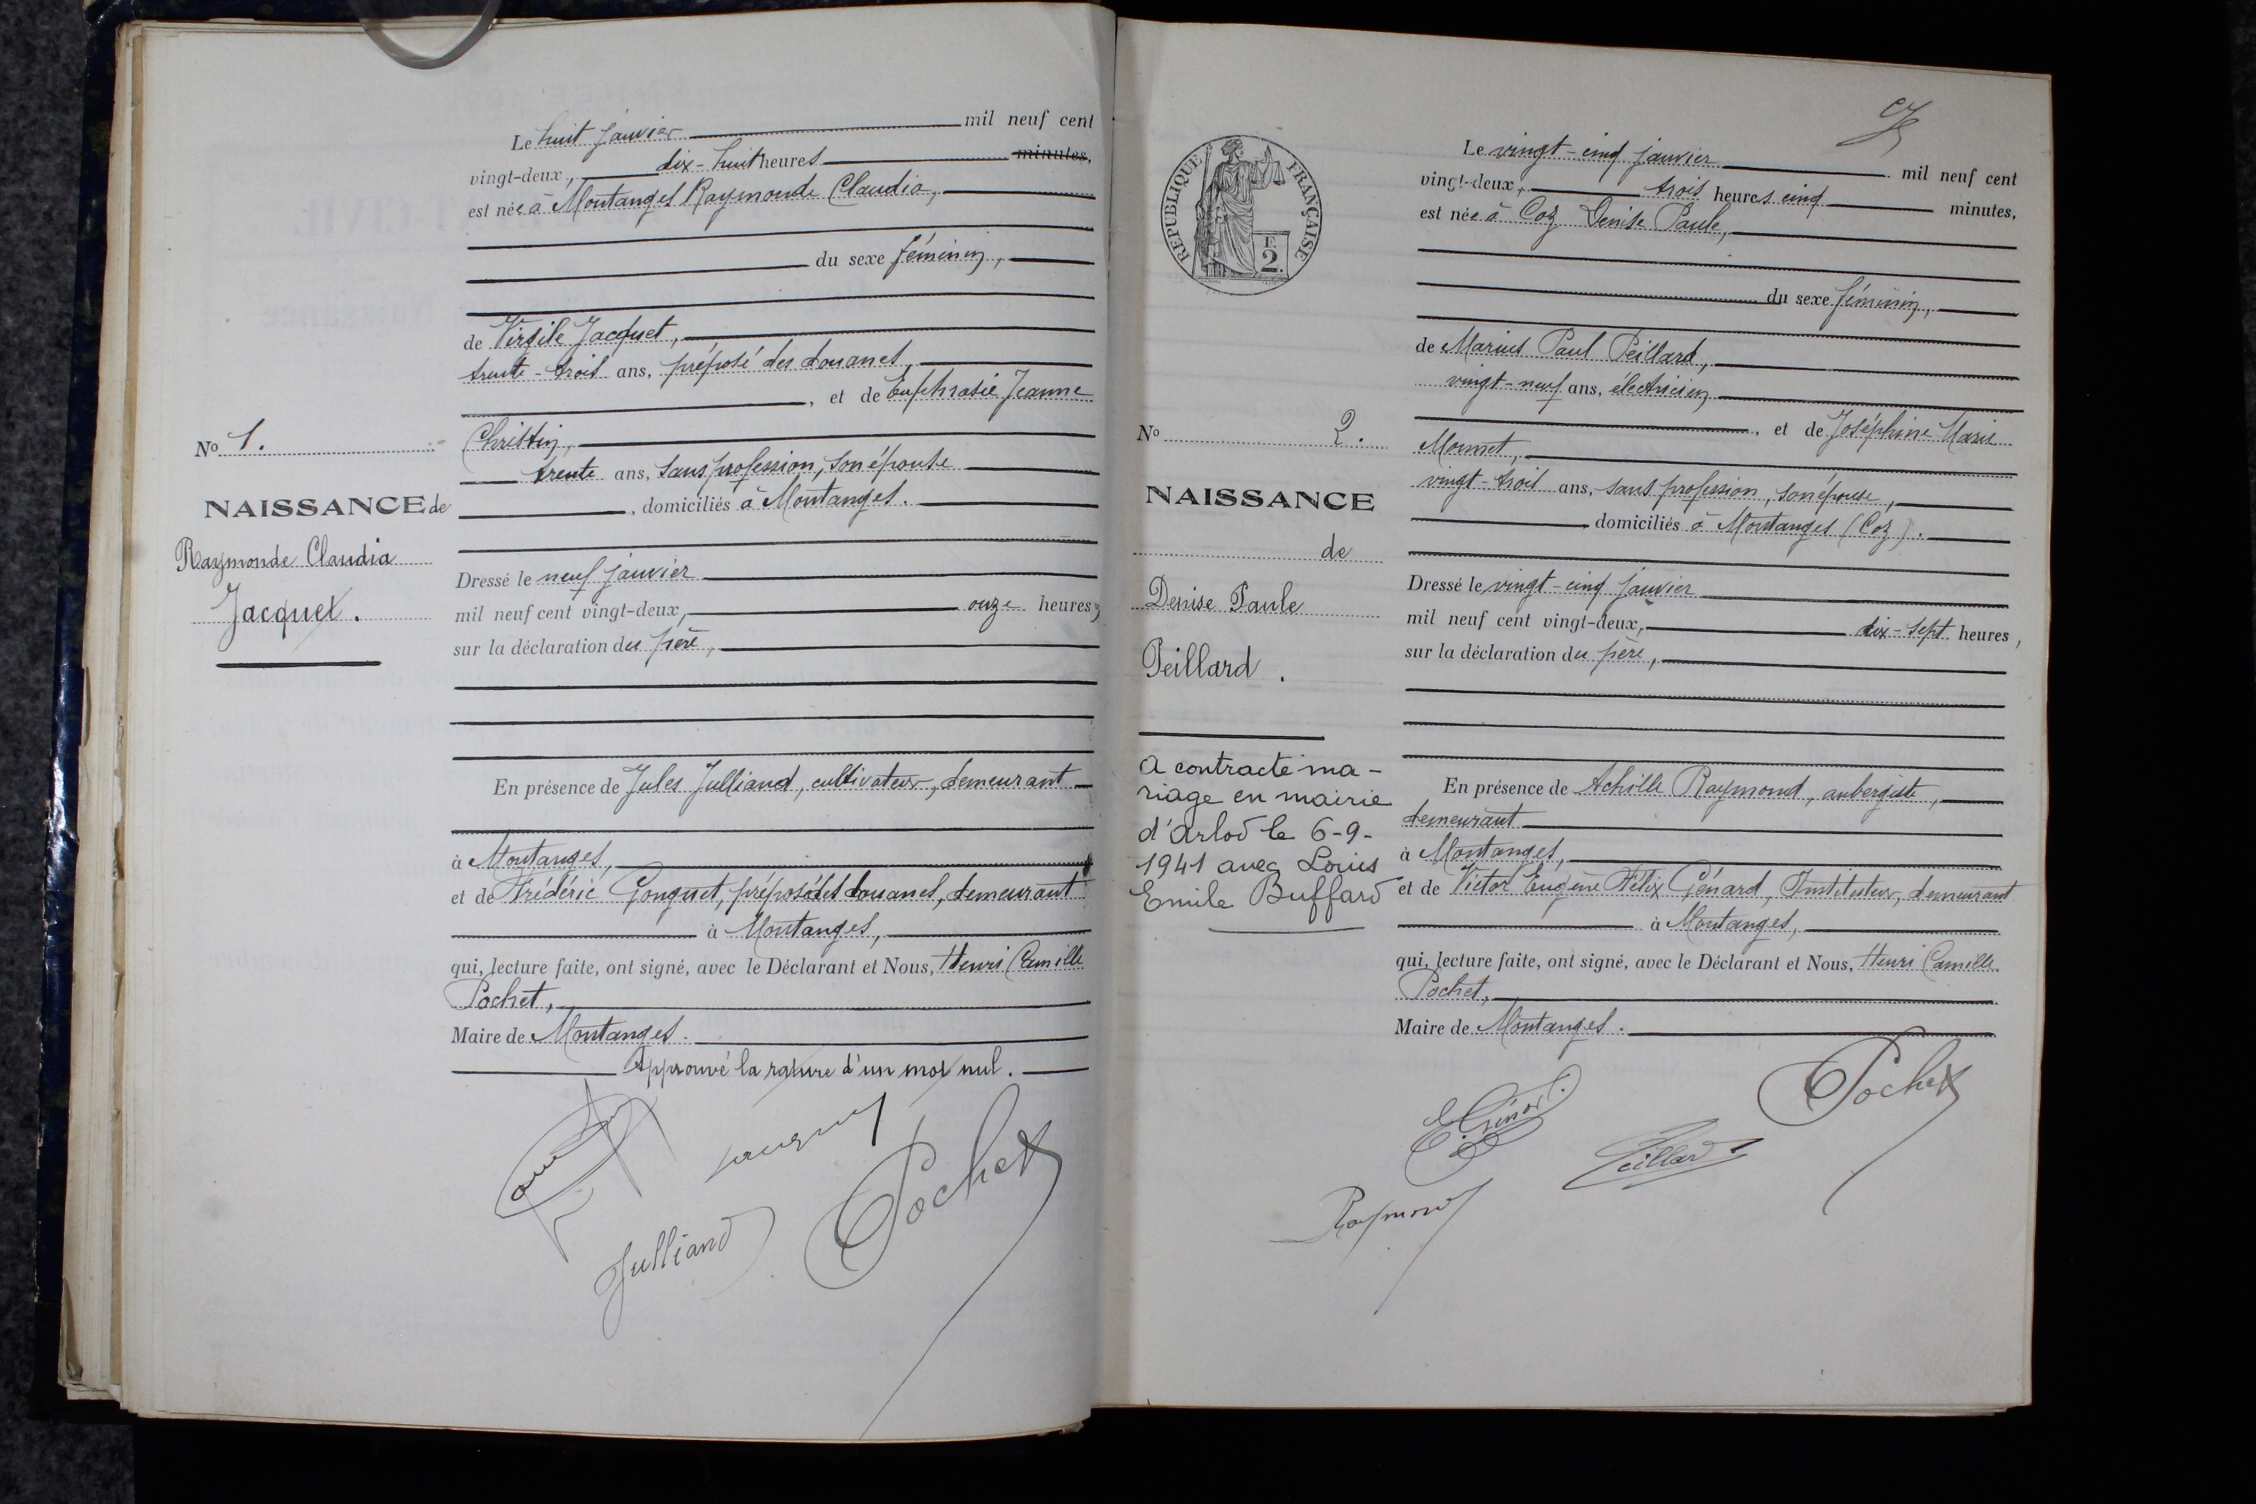 Le huit janvier mil neuf cent
vingt-deux, dix-huit heures minutes,
est née à Montanges Raymonde Claudia,
du sexe féminin,
de Virgile Jacquet,
trente-trois ans, préposé des douanes,
, et de Euphrasie Jeanne
Christin,
trente ans, sans profession, son épouse
, domiciliés à Montanges.
No 1.
NAISSANCE de
Raymonde Claudia
Jacquet.
Dressé le neuf janvier
mil neuf cent vingt-deux, onze heures,
sur la déclaration du père,
En présence de Jules Julliand, cultivateur, demeurant
à Montanges,
et de Frédéric Gonguet, préposé des douanes, demeurant
à Montanges,
qui, lecture faite, ont signé, avec le Déclarant et Nous, Henri Camille
Pochet,
Maire de Montanges.
Approuvé la rature d'un mot nul.
Jacquet
Julliand
Pochet
RÉPUBLIQUE FRANÇAISE
2
Le vingt-cinq janvier mil neuf cent
vingt-deux, trois heures cinq minutes,
est née à Coz Denise Paule,
du sexe féminin,
de Marius Paul Peillard,
vingt-neuf ans, électricien
, et de Joséphine Marie
Monnet,
vingt-trois ans, sans profession, son épouse,
domiciliés à Montanges (Coz).
No 2.
NAISSANCE
de
Denise Paule
Peillard.
A contracté ma-
riage en mairie
d'Arlod le 6-9-
1941 avec Louis
Emile Buffard
Dressé le vingt-cinq janvier
mil neuf cent vingt-deux, dix-sept heures,
sur la déclaration du père,
En présence de Achille Raymond, aubergiste,
demeurant
à Montanges,
et de Victor Eugène Félix Génard, Instituteur, demeurant
à Montanges,
qui, lecture faite, ont signé, avec le Déclarant et Nous, Henri Camille
Pochet,
Maire de Montanges.
Pochet
E. Génard
Peillard
Raymond